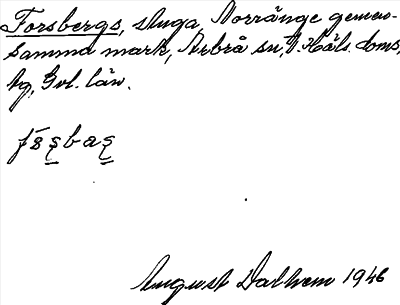 Torsbergs, stuga, Norränge gemen-
samma mark, Arbrå sn, V. Häls. doms.
hg, Gvl. län.
August Dalhem 1946